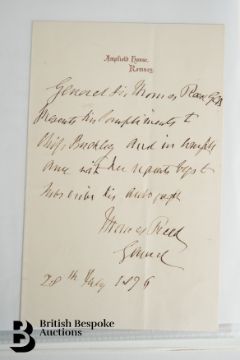 Ampfield House,
Romsey.
General Sir Thomas Reed GCB
Presents his compliments to
Miss Buckley and in compli
ance with her request begs to
subscribe his autograph
Thomas Reed
General
28th July 1876
British Bespoke
Auctions